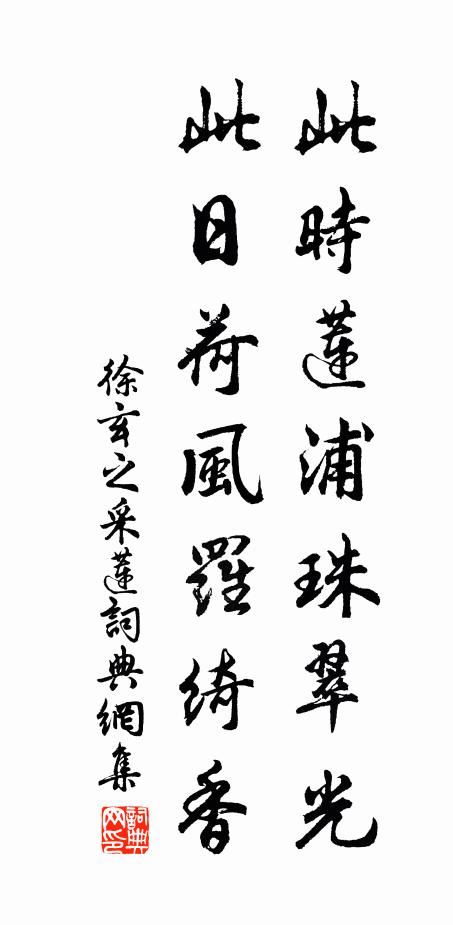 此時蓮浦珠翠光
此日荷風羅綺香
徐玄之采蓮詞典網集
詞典網印